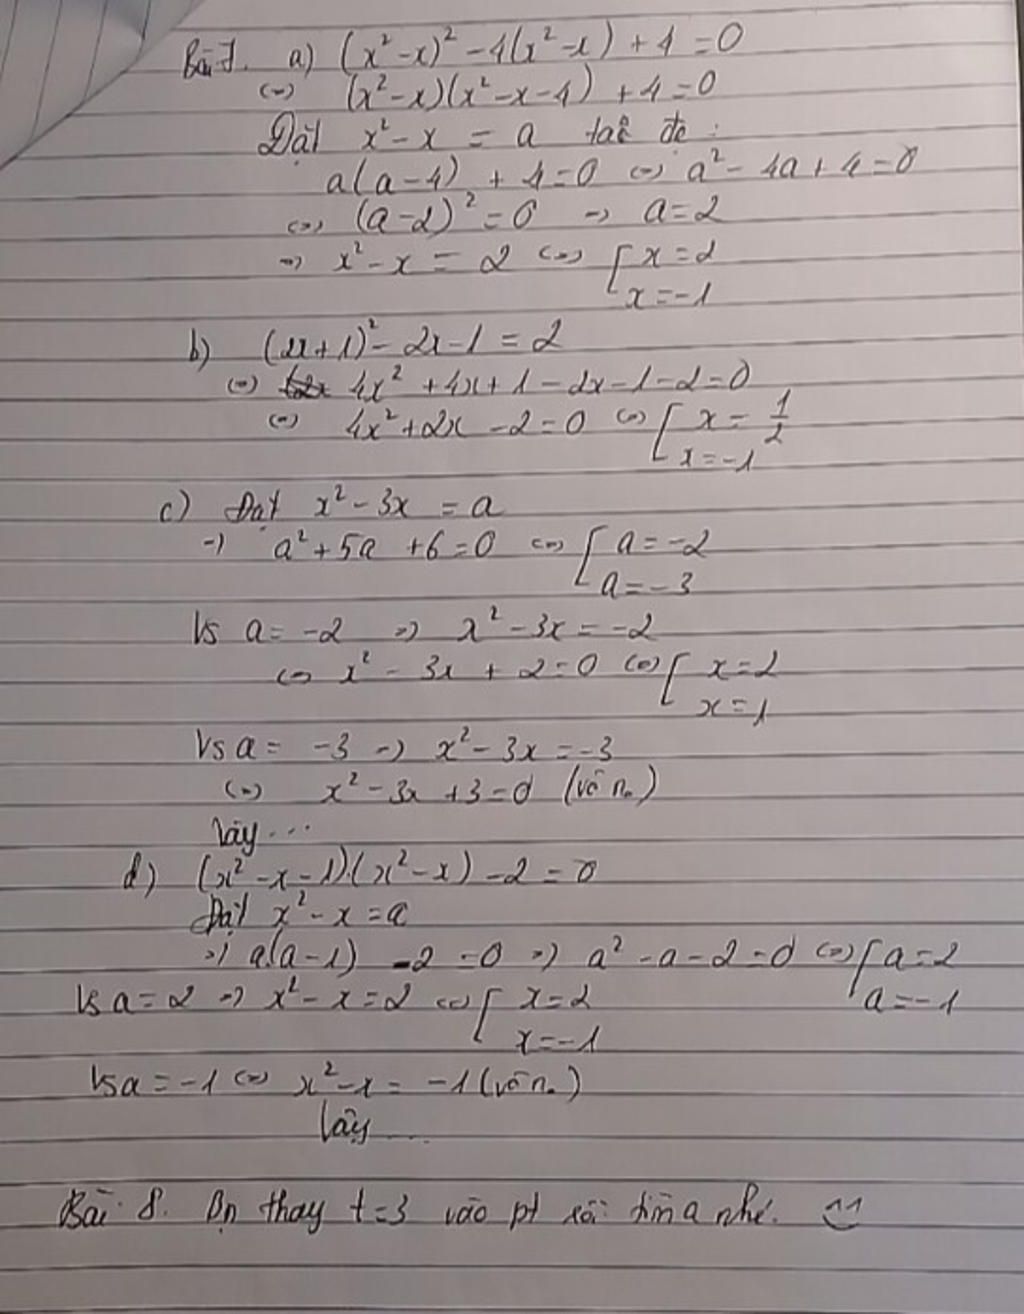 Bài 7. a) (x² - x)² - 4(x² - x) + 4 = 0
(=) (x² - x)(x² - x - 4) + 4 = 0
Đặt x² - x = a ta đc :
a(a - 4) + 4 = 0 (=) a² - 4a + 4 = 0
(=) (a - 2)² = 0 => a = 2
=> x² - x = 2 (=) [ x = 2
x = -1
b) (2x + 1)² - 2x - 1 = 2
(=) 4x² + 4x + 1 - 2x - 1 - 2 = 0
(=) 4x² + 2x - 2 = 0 (=) [ x = 1/2
x = -1
c) Đặt x² - 3x = a
=> a² + 5a + 6 = 0 (=) [ a = -2
a = -3
Vs a = -2 => x² - 3x = -2
(=) x² - 3x + 2 = 0 (=) [ x = 2
x = 1
Vs a = -3 => x² - 3x = -3
(=) x² - 3x + 3 = 0 (vô n.)
Vậy ...
d) (x² - x - 1).(x² - x) - 2 = 0
Đặt x² - x = a
=> a(a - 1) - 2 = 0 => a² - a - 2 = 0 (=) [ a = 2
a = -1
Vs a = 2 => x² - x = 2 (=) [ x = 2
x = -1
Vs a = -1 (=) x² - x = -1 (vô n.)
Vậy ...
Bài 8. Bn thay t = 3 vào pt rồi tìm a nhé.